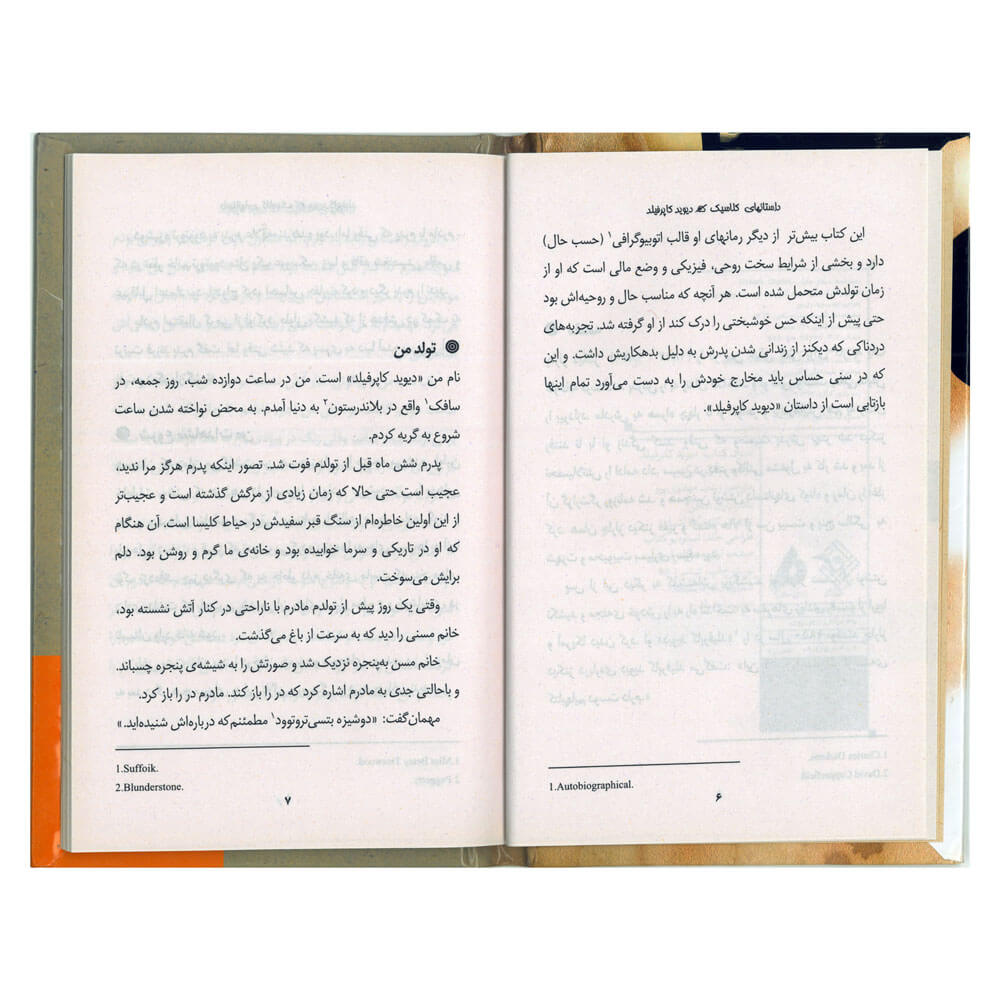 داستانهای کلاسیک دیوید کاپرفیلد
این کتاب بیش‌تر از دیگر رمانهای او قالب اتوبیوگرافی۱ (حسب حال)
دارد و بخشی از شرایط سخت روحی، فیزیکی و وضع مالی است که او از
زمان تولدش متحمل شده است. هر آنچه که مناسب حال و روحیه‌اش بود
حتی پیش از اینکه حس خوشبختی را درک کند از او گرفته شد. تجربه‌های
دردناکی که دیکنز از زندانی شدن پدرش به دلیل بدهکاریش داشت. و این
که در سنی حساس باید مخارج خودش را به دست می‌آورد تمام اینها
بازتابی است از داستان «دیوید کاپرفیلد».
1.Autobiographical.
۶
تولد من
نام من «دیوید کاپرفیلد» است. من در ساعت دوازده شب، روز جمعه، در
سافک۱ واقع در بلاندرستون۲ به دنیا آمدم. به محض نواخته شدن ساعت
شروع به گریه کردم.
پدرم شش ماه قبل از تولدم فوت شد. تصور اینکه پدرم هرگز مرا ندید،
عجیب است حتی حالا که زمان زیادی از مرگش گذشته است و عجیب‌تر
از این اولین خاطره‌ام از سنگ قبر سفیدش در حیاط کلیسا است. آن هنگام
که او در تاریکی و سرما خوابیده بود و خانه‌ی ما گرم و روشن بود. دلم
برایش می‌سوخت.
وقتی یک روز پیش از تولدم مادرم با ناراحتی در کنار آتش نشسته بود،
خانم مسنی را دید که به سرعت از باغ می‌گذشت.
خانم مسن به‌پنجره نزدیک شد و صورتش را به شیشه‌ی پنجره چسباند.
و باحالتی جدی به مادرم اشاره کرد که در را باز کند. مادرم در را باز کرد.
مهمان‌گفت: «دوشیزه بتسی‌تروتوود۱ مطمئنم‌که درباره‌اش شنیده‌اید.»
1.Suffoik.
2.Blunderstone.
۷